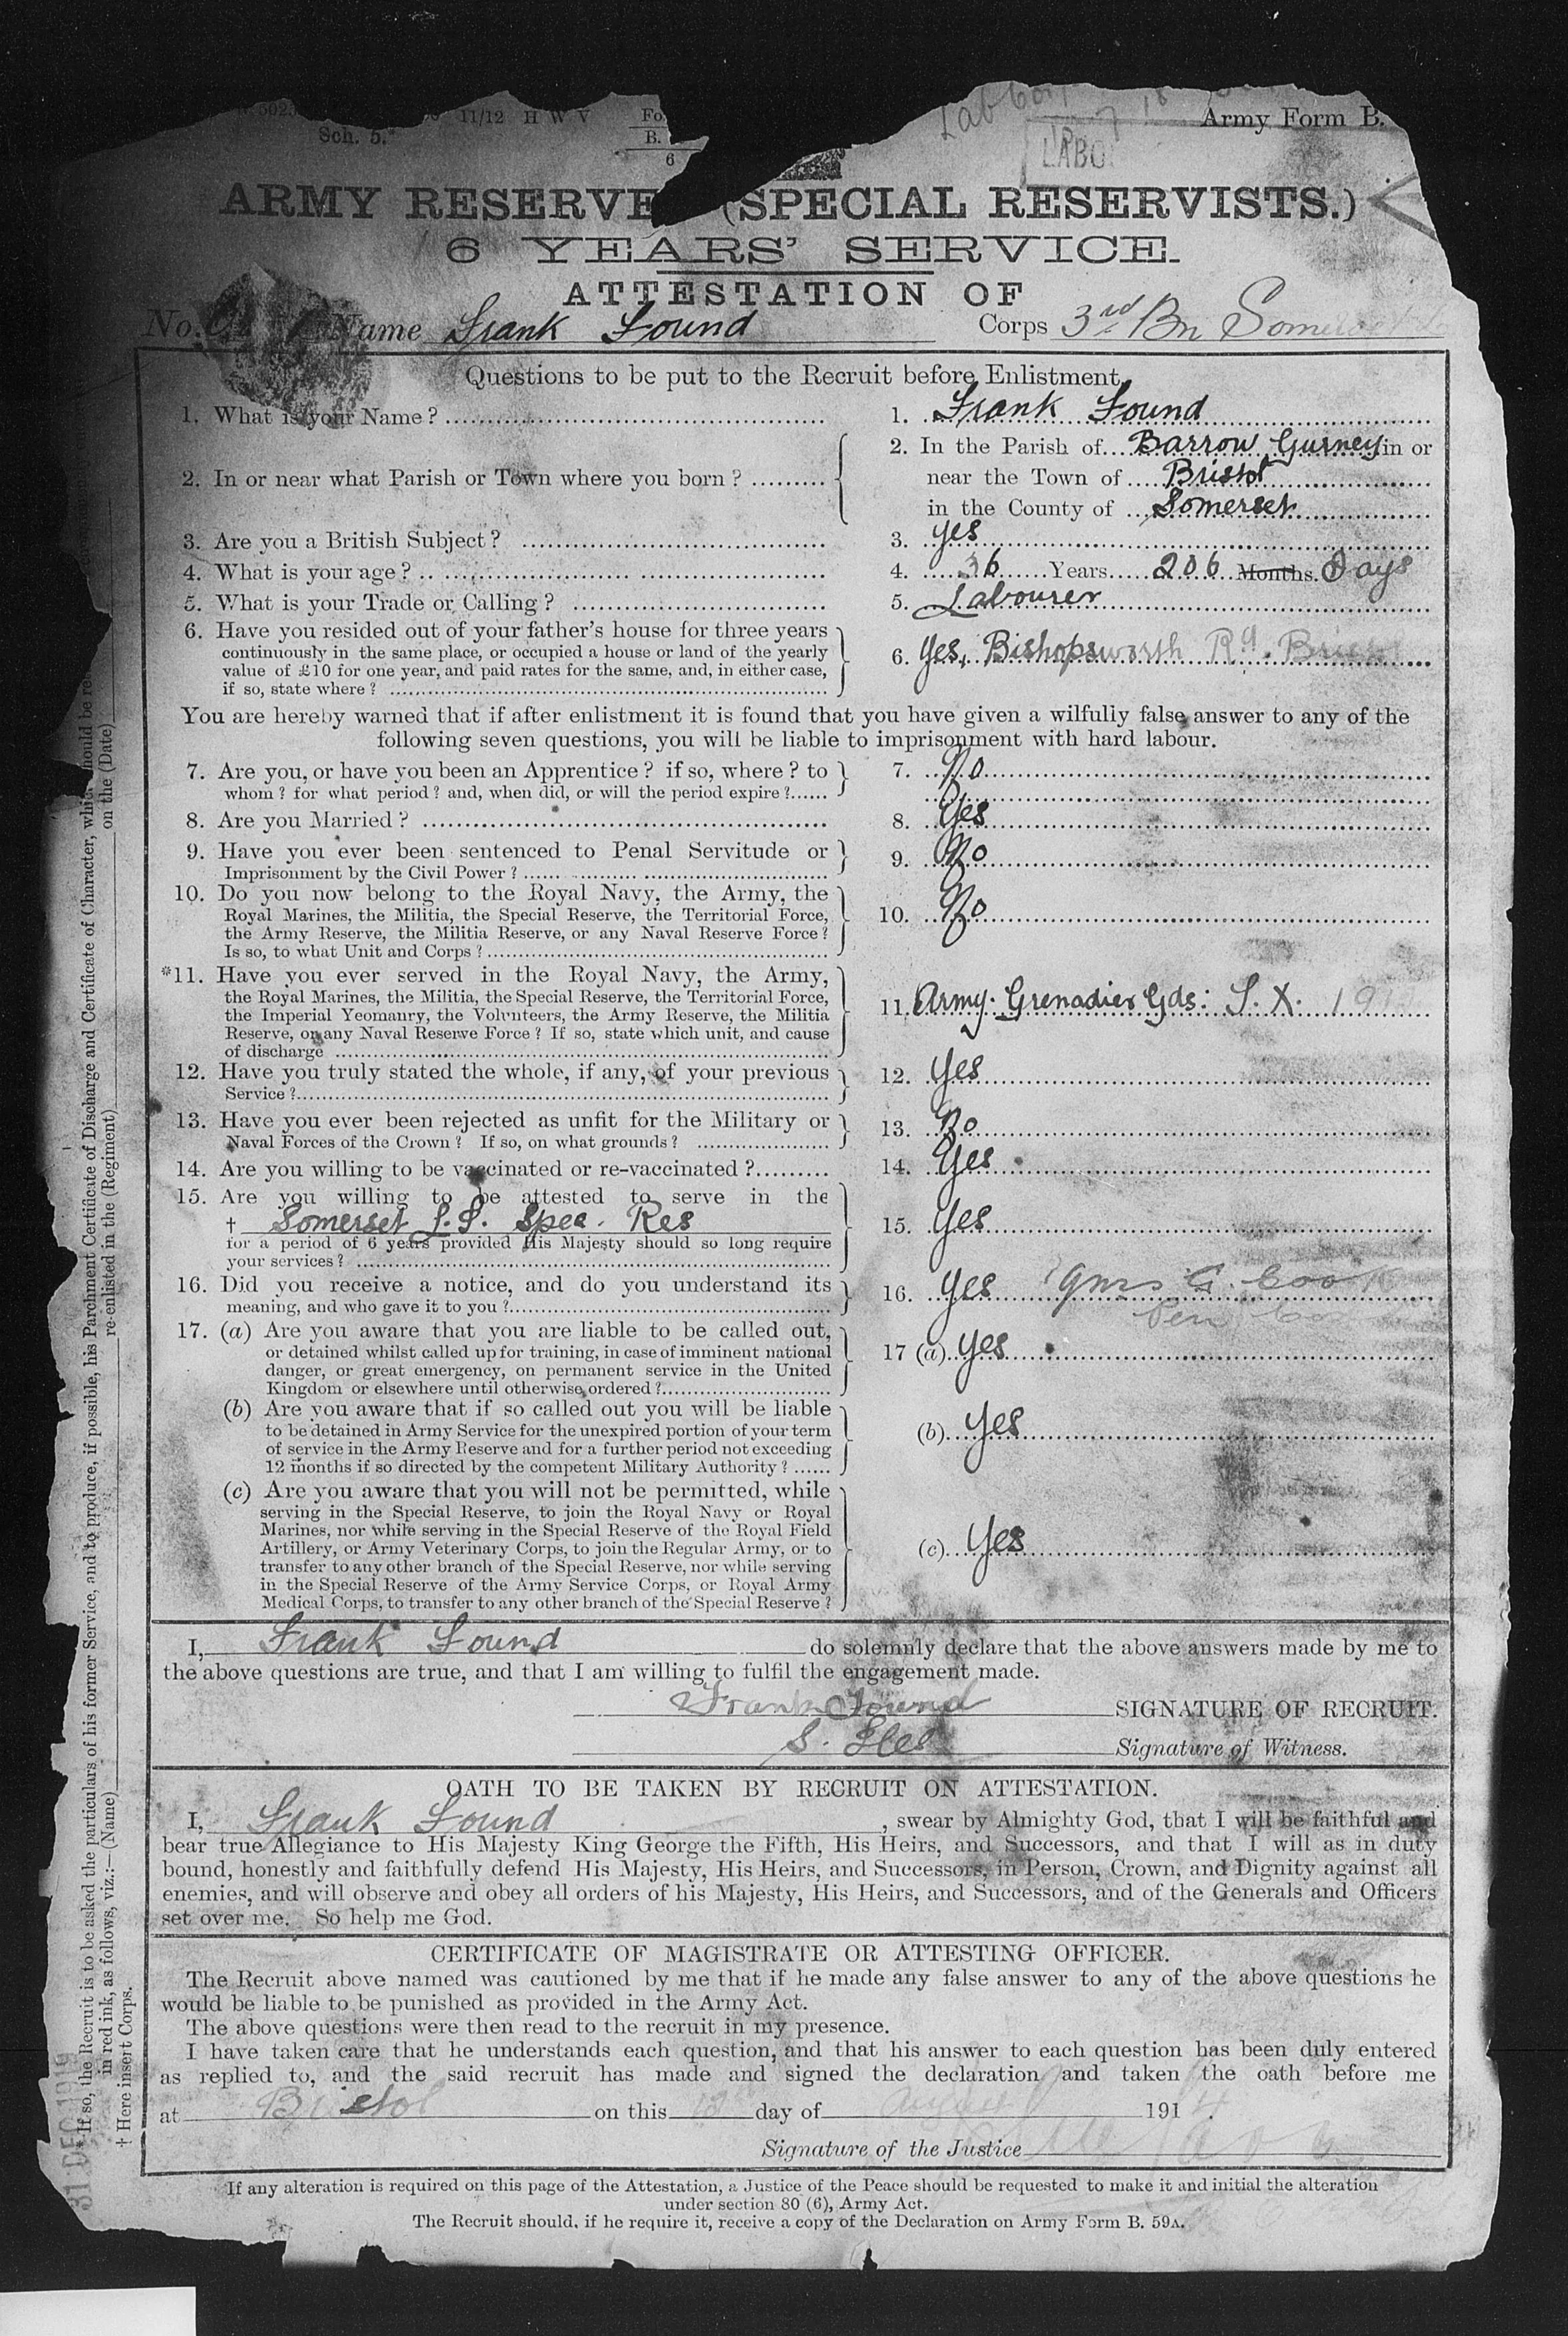 11/12 H W V
Sch. 5.
B.
6
Army Form B.
LABO
ARMY RESERVE (SPECIAL RESERVISTS.)
6 YEARS' SERVICE.
ATTESTATION OF
No. Name Frank Found Corps 3rd Bn Somerset
Questions to be put to the Recruit before Enlistment.
1. What is your Name? 1. Frank Found
2. In or near what Parish or Town where you born? 2. In the Parish of Barrow Gurney in or
near the Town of Bristol
in the County of Somerset
3. Are you a British Subject? 3. Yes
4. What is your age? 4. 36 Years 206 Months. Days
5. What is your Trade or Calling? 5. Labourer
6. Have you resided out of your father's house for three years
continuously in the same place, or occupied a house or land of the yearly
value of £10 for one year, and paid rates for the same, and, in either case,
if so, state where? 6. Yes, Bishopsworth Rd. Bristol
You are hereby warned that if after enlistment it is found that you have given a wilfully false answer to any of the
following seven questions, you will be liable to imprisonment with hard labour.
7. Are you, or have you been an Apprentice? if so, where? to
whom? for what period? and, when did, or will the period expire? 7. No
8. Are you Married? 8. Yes
9. Have you ever been sentenced to Penal Servitude or
Imprisonment by the Civil Power? 9. No
10. Do you now belong to the Royal Navy, the Army, the
Royal Marines, the Militia, the Special Reserve, the Territorial Force,
the Army Reserve, the Militia Reserve, or any Naval Reserve Force?
Is so, to what Unit and Corps? 10. No
*11. Have you ever served in the Royal Navy, the Army,
the Royal Marines, the Militia, the Special Reserve, the Territorial Force,
the Imperial Yeomanry, the Volunteers, the Army Reserve, the Militia
Reserve, or any Naval Reserve Force? If so, state which unit, and cause
of discharge 11. Army. Grenadier Gds: T. X. 191
12. Have you truly stated the whole, if any, of your previous
Service? 12. Yes
13. Have you ever been rejected as unfit for the Military or
Naval Forces of the Crown? If so, on what grounds? 13. No
14. Are you willing to be vaccinated or re-vaccinated? 14. Yes
15. Are you willing to be attested to serve in the
† Somerset L.I. Spec. Res
for a period of 6 years provided His Majesty should so long require
your services? 15. Yes
16. Did you receive a notice, and do you understand its
meaning, and who gave it to you? 16. Yes Qms G. Cook
17. (a) Are you aware that you are liable to be called out,
or detained whilst called up for training, in case of imminent national
danger, or great emergency, on permanent service in the United
Kingdom or elsewhere until otherwise ordered? 17 (a) Yes
(b) Are you aware that if so called out you will be liable
to be detained in Army Service for the unexpired portion of your term
of service in the Army Reserve and for a further period not exceeding
12 months if so directed by the competent Military Authority? (b) Yes
(c) Are you aware that you will not be permitted, while
serving in the Special Reserve, to join the Royal Navy or Royal
Marines, nor while serving in the Special Reserve of the Royal Field
Artillery, or Army Veterinary Corps, to join the Regular Army, or to
transfer to any other branch of the Special Reserve, nor while serving
in the Special Reserve of the Army Service Corps, or Royal Army
Medical Corps, to transfer to any other branch of the Special Reserve? (c) Yes
I, Frank Found do solemnly declare that the above answers made by me to
the above questions are true, and that I am willing to fulfil the engagement made.
Frank Found SIGNATURE OF RECRUIT.
S. Iles Signature of Witness.
OATH TO BE TAKEN BY RECRUIT ON ATTESTATION.
I, Frank Found, swear by Almighty God, that I will be faithful and
bear true Allegiance to His Majesty King George the Fifth, His Heirs, and Successors, and that I will as in duty
bound, honestly and faithfully defend His Majesty, His Heirs, and Successors, in Person, Crown, and Dignity against all
enemies, and will observe and obey all orders of his Majesty, His Heirs, and Successors, and of the Generals and Officers
set over me. So help me God.
CERTIFICATE OF MAGISTRATE OR ATTESTING OFFICER.
The Recruit above named was cautioned by me that if he made any false answer to any of the above questions he
would be liable to be punished as provided in the Army Act.
The above questions were then read to the recruit in my presence.
I have taken care that he understands each question, and that his answer to each question has been duly entered
as replied to, and the said recruit has made and signed the declaration and taken the oath before me
at Bristol on this day of August 1914.
Signature of the Justice
If any alteration is required on this page of the Attestation, a Justice of the Peace should be requested to make it and initial the alteration
under section 80 (6), Army Act.
The Recruit should, if he require it, receive a copy of the Declaration on Army Form B. 59A.
* If so, the Recruit is to be asked the particulars of his former Service, and to produce, if possible, his Parchment Certificate of Discharge and Certificate of Character, which should be
in red ink, as follows, viz.:—(Name) re-enlisted in the (Regiment) on the (Date)
† Here insert Corps.
31 DEC 191